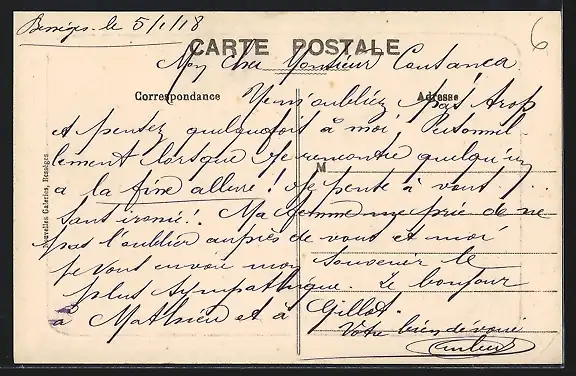 Bessèges le 5/1/18
CARTE POSTALE
Mon Cher Monsieur Coutancá
Correspondance
Adresse
N'oubliez pas trop
et pensez quelquefois à moi, Personnel-
lement lorsque je rencontre quelqu'un
M
a la fine allure! Je pense à vous ...
sans ironie!. Ma femme me prie de ne
pas l'oublier auprès de vous et moi
je vous envoie mon souvenir le
plus sympathique. Le bonjour
à Mathieu et à Gillot.
Votre bien dévoué
Nouvelles Galeries, Bessèges
6